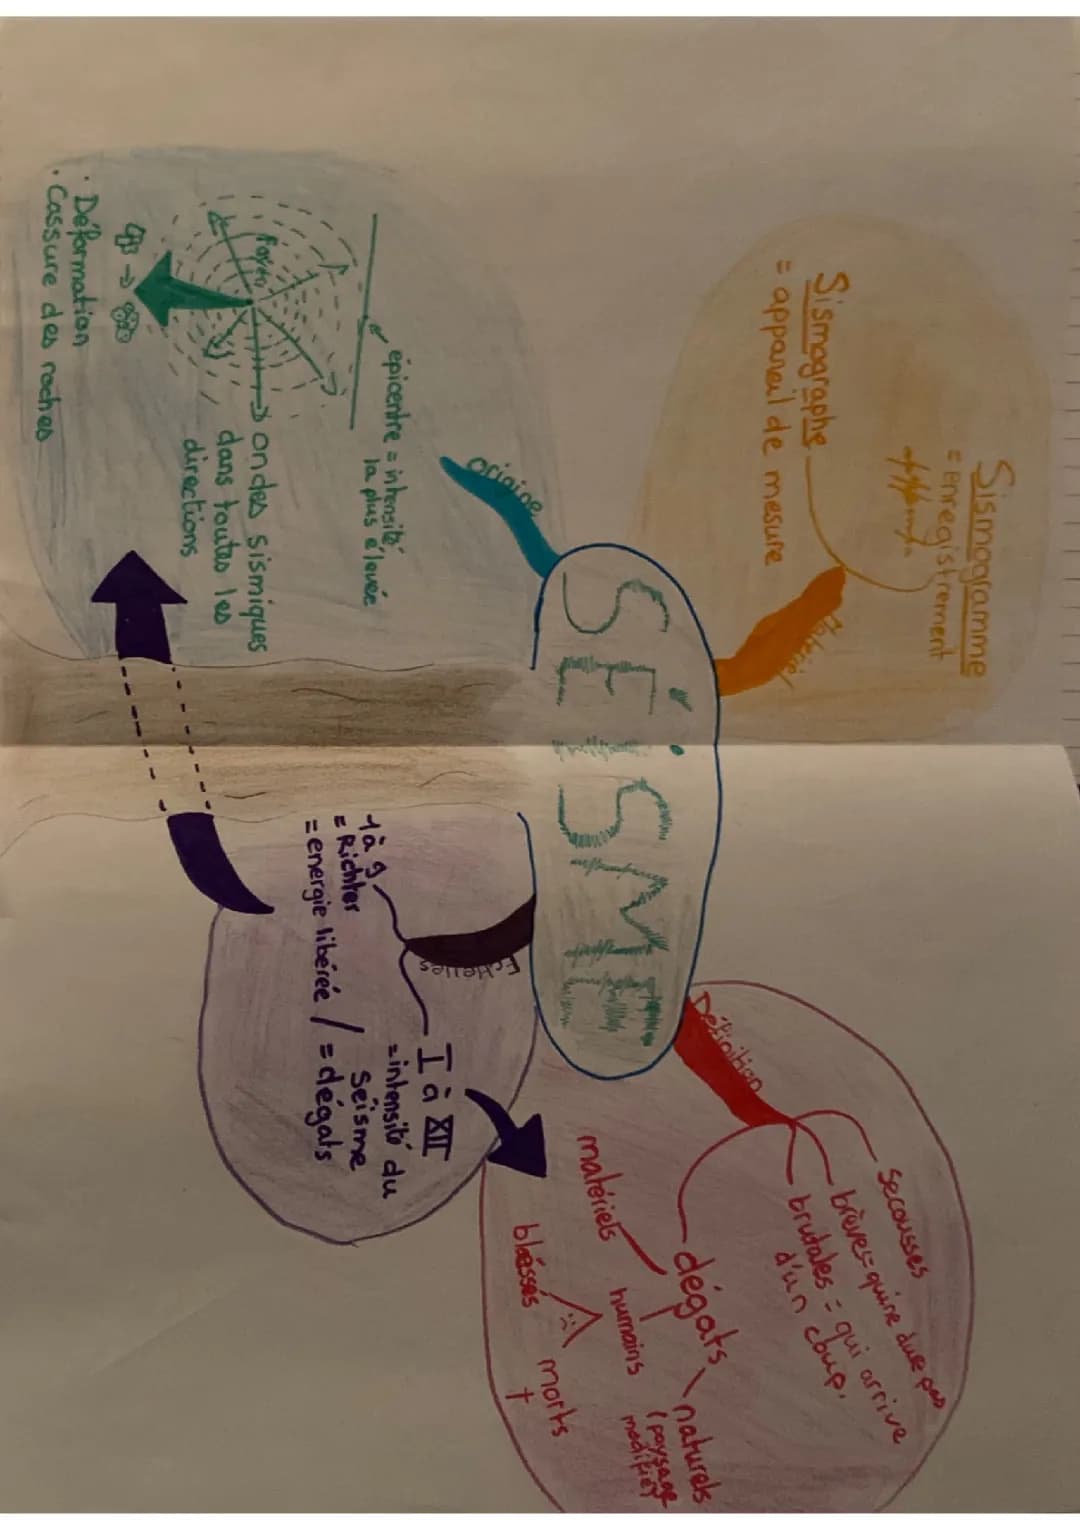 SÉISME
Matériel
Sismogramme
= Enregistrement
Sismographe
= appareil de mesure
Définition
secousses
brèves = qui ne dure pas
brutales = qui arrive
d'un coup.
dégats
matériels
humains
blessés
morts
naturels
(paysage
modifié)
origine
épicentre = intensité
la plus élevée
Foyer
ondes sismiques
dans toutes les
directions
· Déformation
· Cassure des roches
Echelles
1 à 9
= Richter
= energie libérée /
I à XII
= intensité du
séisme
= dégats